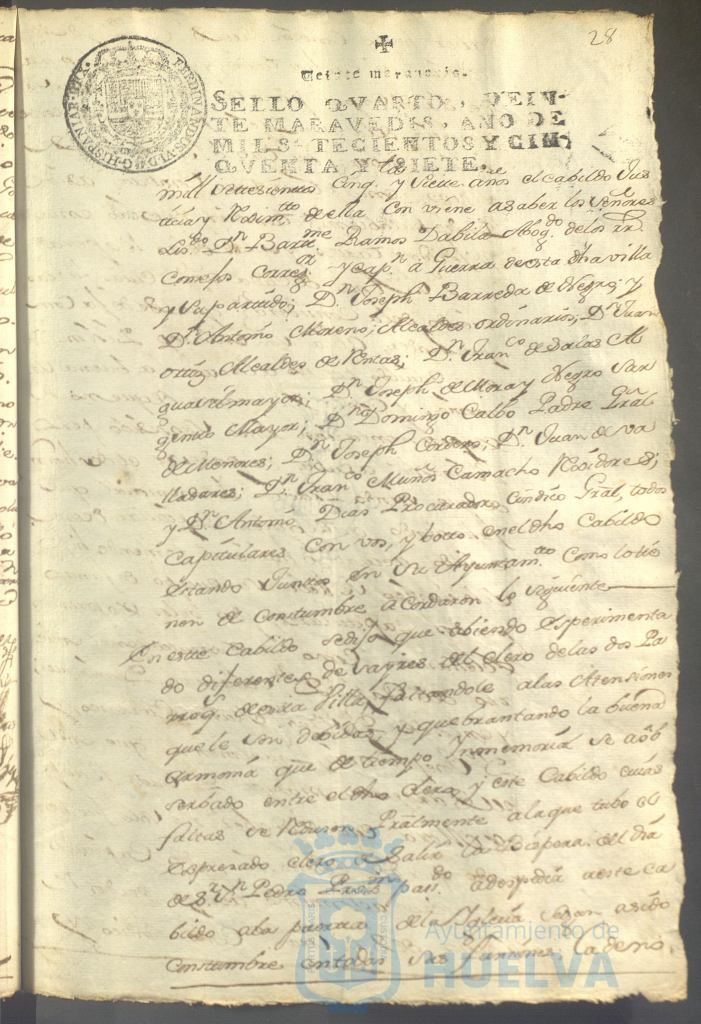 28
Veinte maravedis.
SELLO QVARTO, VEIN-
TE MARAVEDIS, AÑO DE
MIL SETECIENTOS Y CIN-
QVENTA Y SIETE.
FERDINANDUS.VI.D.G.HISPANIAR.REX
mill settesientos Cinq.ta y Siette años el cabildo Jus
ticia y Reximto de ella Con viene a saber los Señores
Lizdo Dn Barme Ramos Dabila Abogdo de los RR.
Consejos Corregor y capn a Guerra de esta dha villa
y su partido; Dn Joseph Barreda de Negro; y
Dn Antonio Moreno; Alcaldes ordinarios; Dn Juan
Ortiz Alcaldes de Rentas; Dn Franco de Salas Al
guazil mayor; Dn Joseph de Mora y Negro Sar
gento Mayor; Dn Domingo Calbo Padre Gral
de Menores; Dn Joseph Cordero; Dn Juan de Va
lladares; Dn Franco Muñoz Camacho Rexidores;
y Dn Antonio Dias Procurador Sindico Gral, todos
Capitulares con vos, y botto en el dho Cabildo
estando Juntos en su Ayuntamto Como lo tie
nen de Constumbre acordaron lo siguiente
En este Cabildo se dijo que abiendo esperimenta
do diferentes desayres del clero de las dos Pa
rroqs de esta Villa, faltandole a las Atensiones
que le son debidas, y quebrantando la buena
armonia que de tiempo Inmemorial se a ob
serbado entre el dho clero y este Cabildo cuias
faltas se Reducen Pralmente a la que tubo el
espresado clero a Salir la Bispera del dia
de Sr Sn Pedro Proxmo passdo a despedir a este ca
bildo a la puerta de la Iglesia segun a sido
Constumbre en todas sus funciones, la de no
Ayuntamiento de
HUELVA